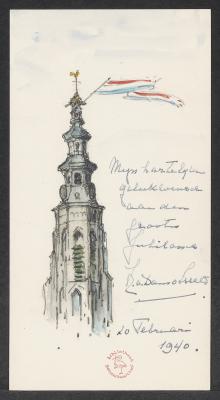 Mijn hartelijke
gelukwensch
aan den
grooten
Jubilaris
20 Februari
1940.